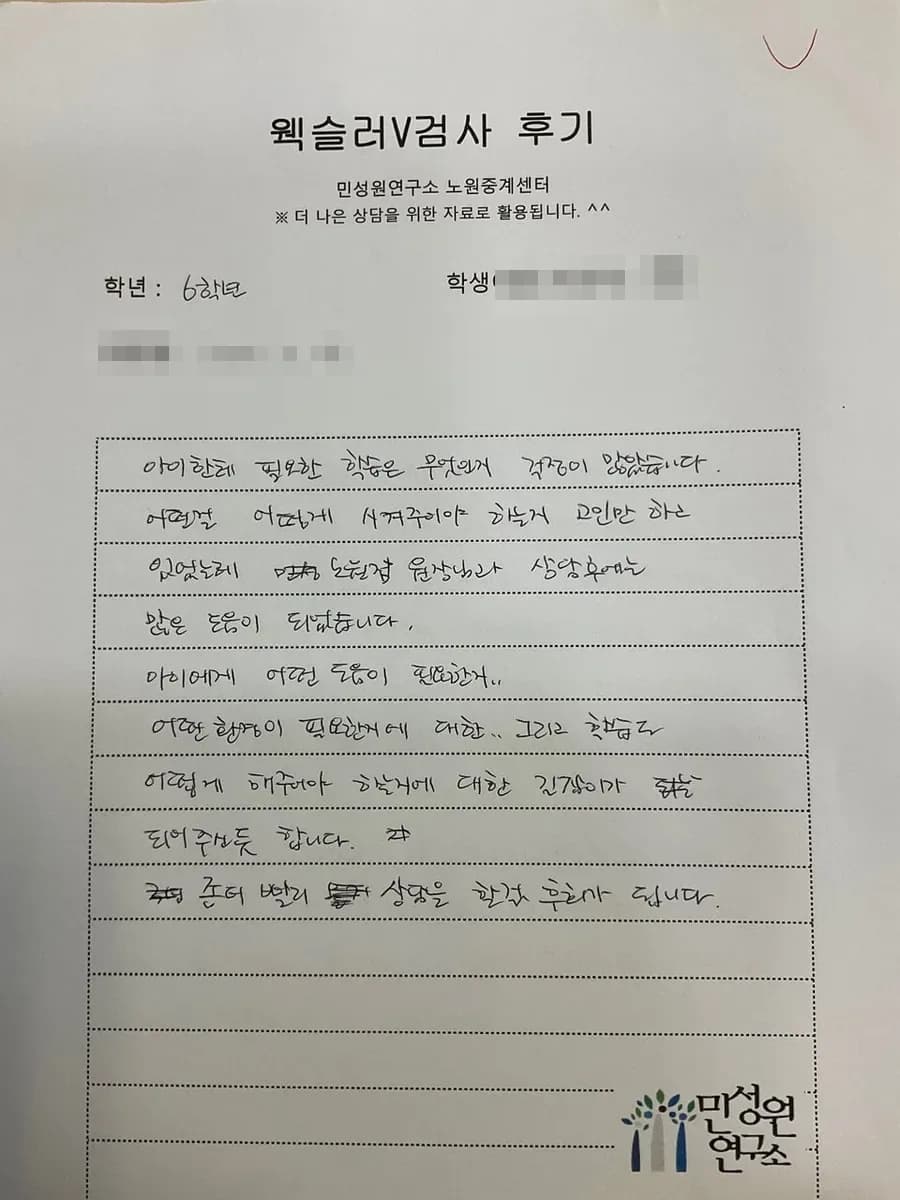 웩슬러V검사 후기
민성원연구소 노원중계센터
※ 더 나은 상담을 위한 자료로 활용됩니다. ^^
학년 : 6학년
학생
아이한테 필요한 학습은 무엇인지 걱정이 많았습니다.
어떤걸 어떻게 시켜주어야 하는지 고민만 하고
있었는데 노원점 원장님과 상담후에는
많은 도움이 되었습니다.
아이에게 어떤 도움이 필요한지..
어떤 환경이 필요한지에 대한.. 그리고 학습도
어떻게 해주어야 하는지에 대한 길잡이가
되어주신듯 합니다.
좀더 빨리 상담을 할걸 후회가 됩니다.
민성원
연구소